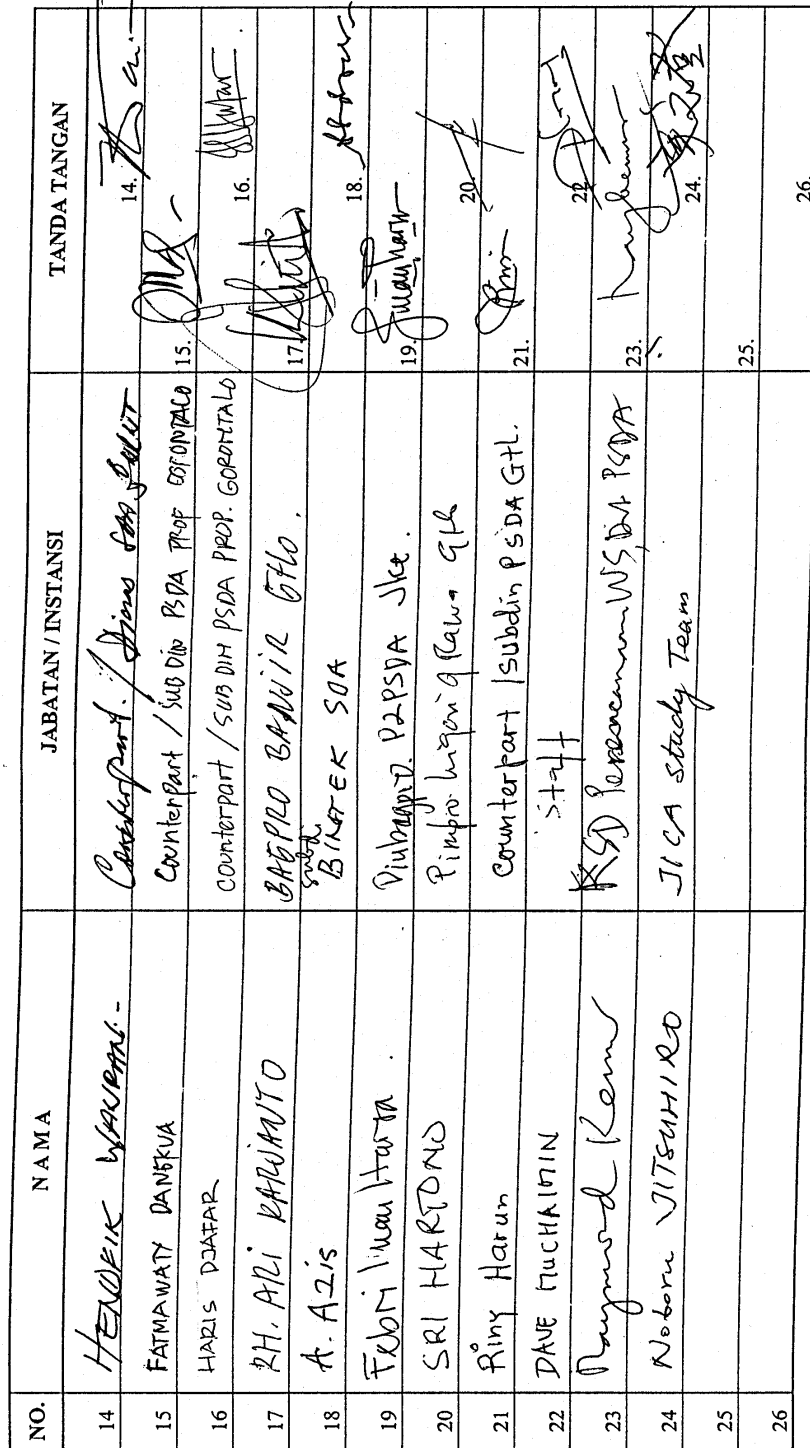 NO. NAMA JABATAN / INSTANSI TANDA TANGAN
14 HENDRIK Counterpart / Dinas 14.
15 FATMAWATY DANGKUA Counterpart / SUB DIN PSDA PROP GORONTALO 15.
16 HARIS DJAFAR counterpart / SUB DIN PSDA PROP. GORONTALO 16.
17 RH. ARI KARWANTO BAGPRO BANJIR GTLO. 17.
18 A. AZIS Subd. BINTEK SDA 18.
19 Febri Imam Harta. P2PSDA Jkt. 19.
20 SRI HARTONO Pimpro Irigasi & Rawa Gtlo 20.
21 Riny Harun counterpart / subdin PSDA Gtl. 21.
22 DAVE MUCHAIMIN Staff 22
23 Raymond KSD Perencanaan WS, Dit PSDA 23.
24 Noboru JITSUHIRO JICA Study Team 24.
25 25.
26 26.